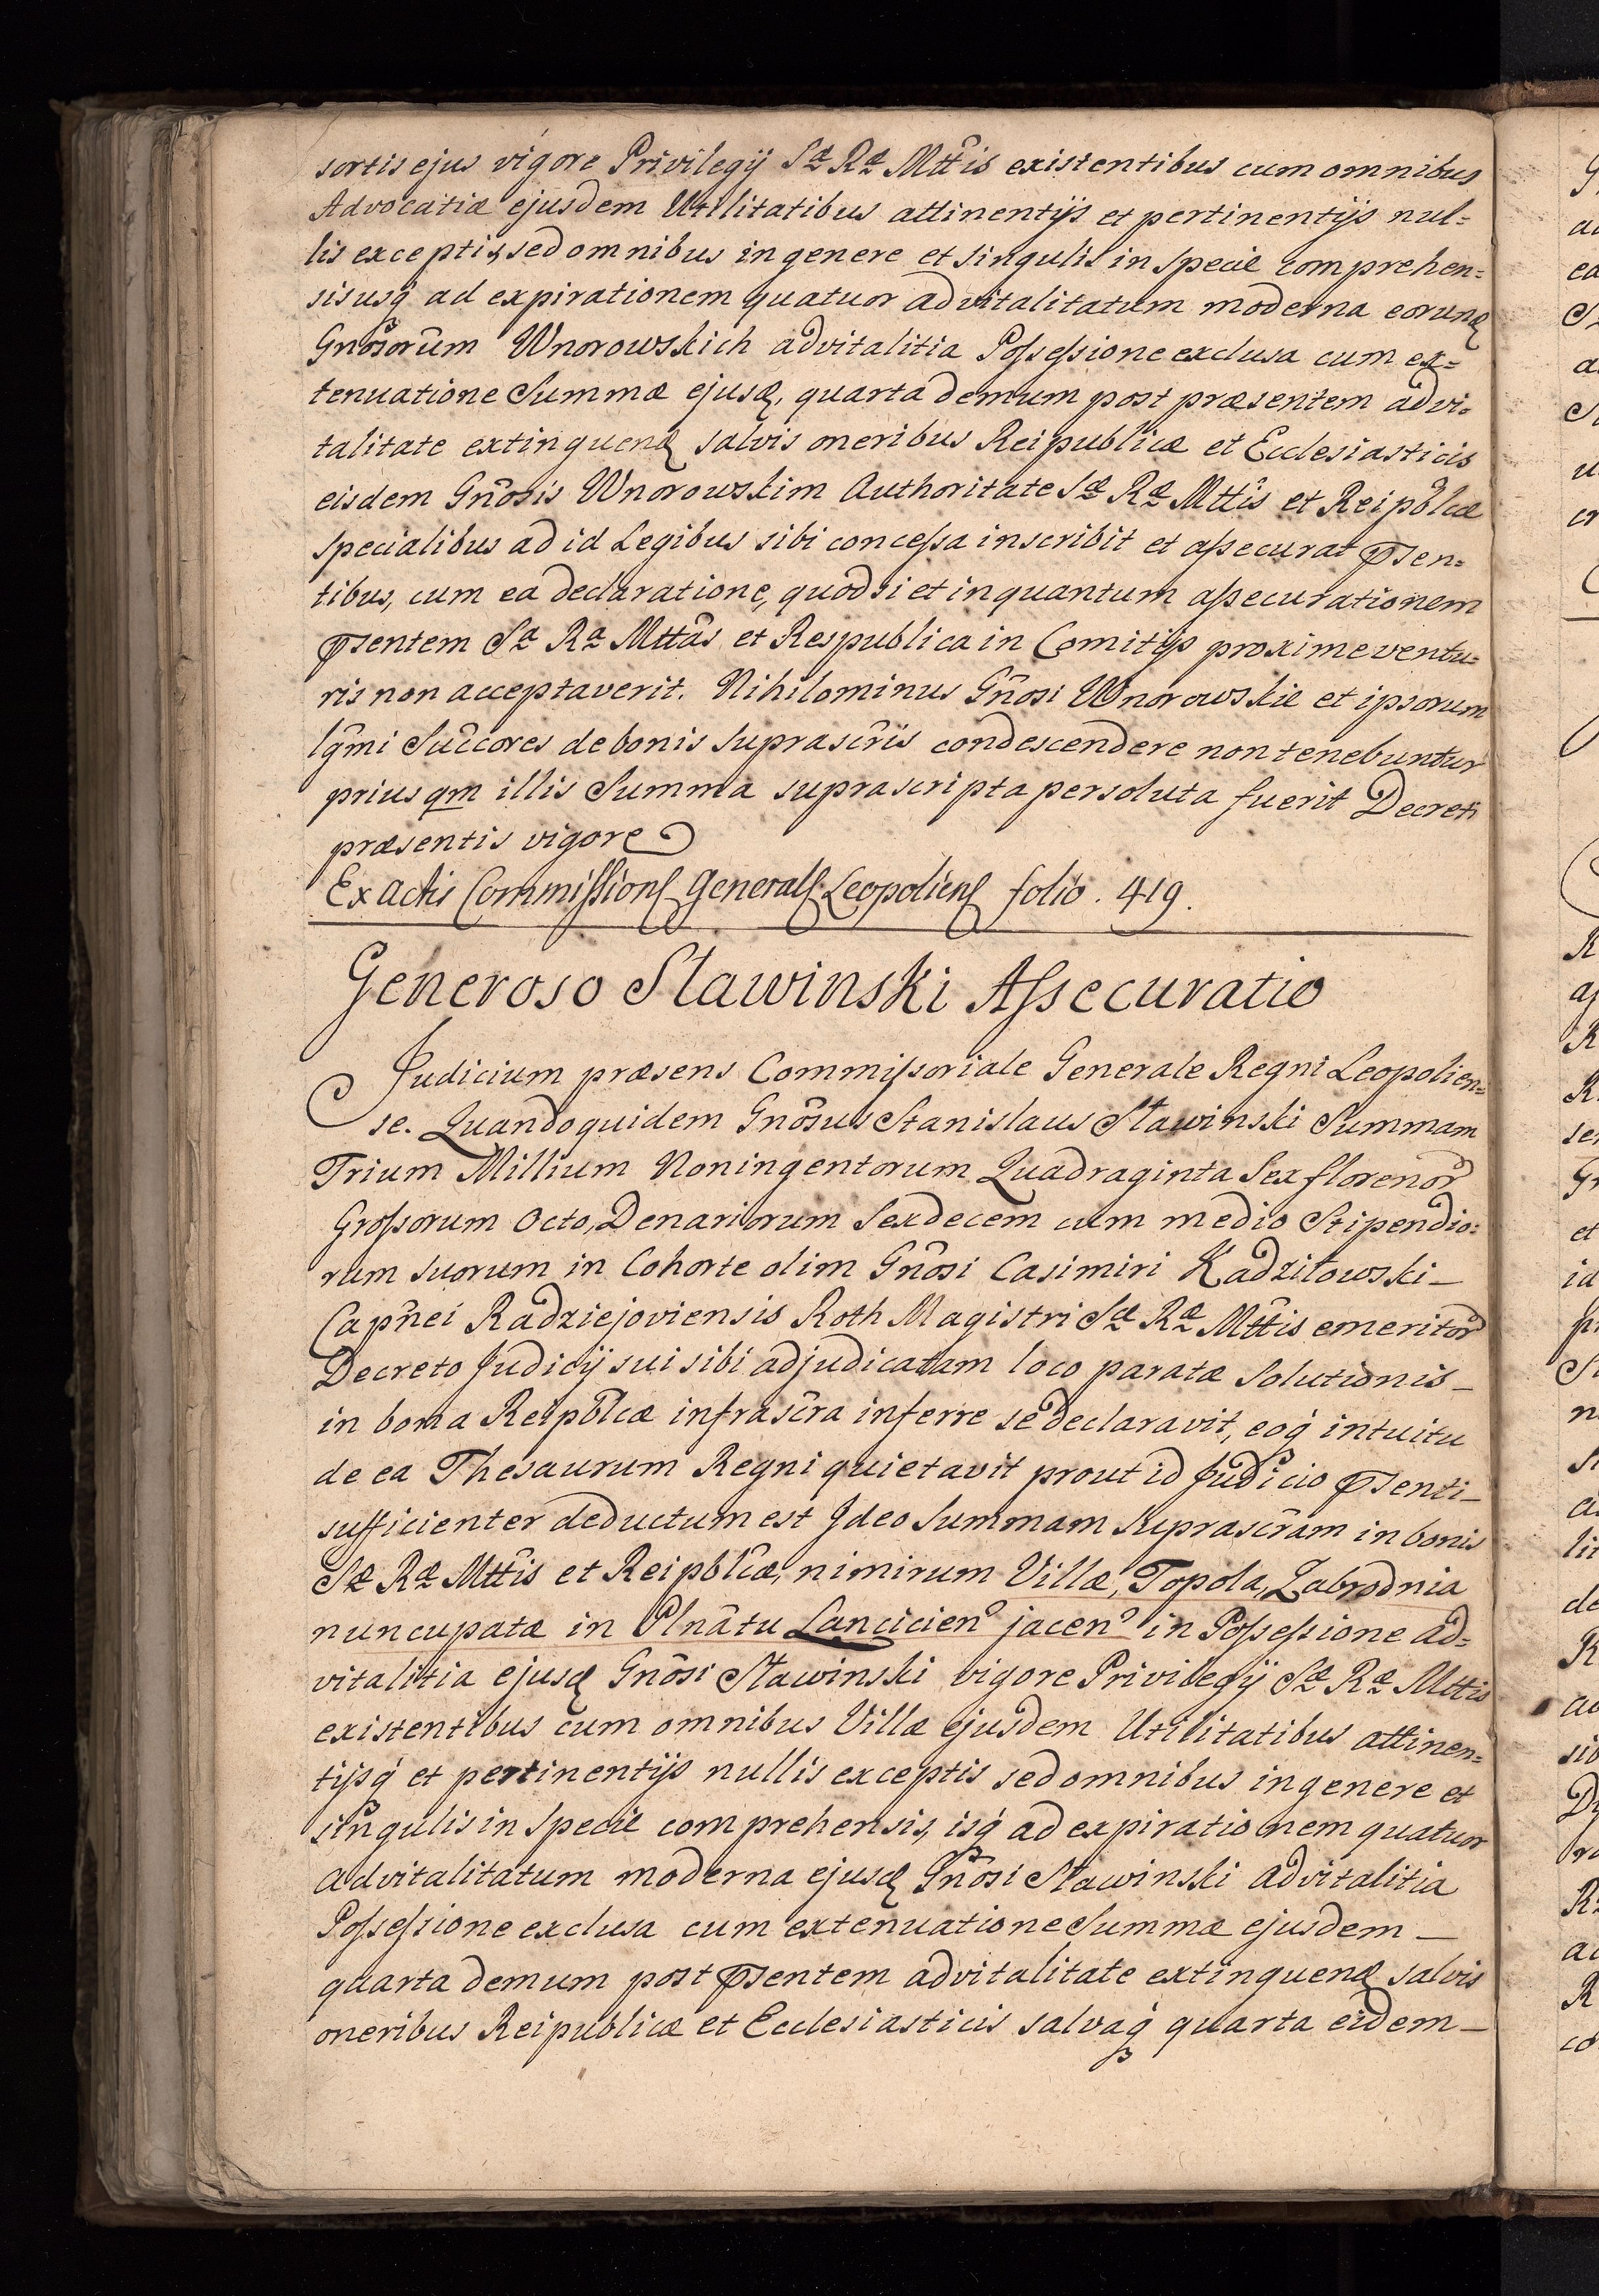 sortis ejus vigore Privilegij Sæ Ræ Mttis existentibus cum omnibus
Advocatiæ ejusdem Utilitatibus attinentijs et pertinentijs nul=
lis exceptis, sed omnibus in genere et singulis in specie comprehen=
sis usq́ ad expirationem quatuor advitalitatum moderna eorund
Gnosorum Wnorowskich advitalitia Possessione exclusa cum ex=
tenuatione Summæ ejusd, quarta demum post præsentem advi=
talitate extinguend salvis oneribus Reipublicæ et Ecclesiasticis
eisdem Gnosis Wnorowskim Authoritate Sæ Ræ Mttis et Reipblcæ
specialibus ad id Legibus sibi concessa inscribit et assecurat psen=
tibus, cum ea declaratione, quod si et inquantum assecurationem
psentem Sa Ra Mttas et Respublica in Comitijs proxime ventu=
ris non acceptaverit. Nihilominus Gnosi Wnorowskie et ipsorum
lgmi Succores de bonis suprascris condescendere non tenebuntur
prius qm illis Summa suprascripta persoluta fuerit Decreti
præsentis vigore
Ex Actis Commissions Generals Leopoliens folio. 419.
Generoso Stawinski Assecuratio
Judicium præsens Commissoriale Generale Regni Leopolien=
se. Quandoquidem Gnosus Stanislaus Stawinski Summam
Trium Millium Noningentorum Quadraginta Sex florenor
Grossorum Octo, Denariorum Sexdecem cum medio Stipendio=
rum suorum in Cohorte olim Gnosi Casimiri Kadzitowski_
Capnei Radziejoviensis Roth Magistri Sæ Ræ Mttis emeritor
Decreto Judicij sui sibi adjudicatam loco paratæ Solutionis_
in bona Reipblcæ infrascra inferre se declaravit, eoq́ intuitu
de ea Thesaurum Regni quietavit prout id Judicio psenti_
sufficienter deductum est Ideo Summam suprascram in bonis
Sæ Ræ Mttis et Reipblicæ, nimirum Villæ, Topola, Zabrodnia
nuncupatæ in Plnatu Lancicien jacen in Possessione ad=
vitalitia ejusd Gnosi Stawinski vigore Privilegij Sæ Ræ Mttis
existentibus cum omnibus Villæ ejusdem Utilitatibus attinen=
tijsq́ et pertinentijs nullis exceptis sed omnibus in genere et
singulis in specie comprehensis, isq́ ad expirationem quatuor
advitalitatum moderna ejusd Gnosi Stawinski advitalitia
Possessione exclusa cum extenuatione Summæ ejusdem_
quarta demum post psentem advitalitate extinguend salvis
oneribus Reipublicæ et Ecclesiasticis salvaq́ quarta eidem_